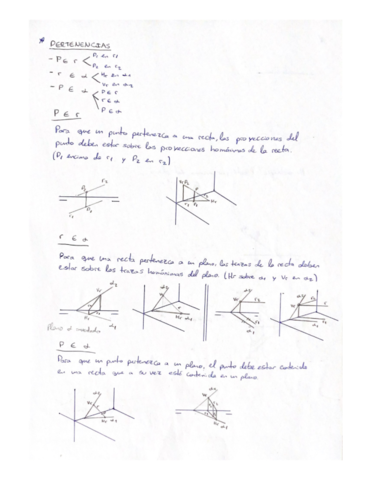 * PERTENENCIAS
- P ∈ r < P₁ en r₁
P₂ en r₂
- r ∈ α < Hr en α₁
Vr en α₂
- P ∈ α < P ∈ r
r ∈ α
P ∈ α
P ∈ r
Para que un punto pertenezca a una recta, las proyecciones del
punto deben estar sobre las proyecciones homónimas de la recta.
(P₁ encima de r₁ y P₂ en r₂)
r ∈ α
Para que una recta pertenezca a un plano, las trazas de la recta deben
estar sobre las trazas homónimas del plano (Hr sobre α₁ y Vr en α₂)
P ∈ α
Para que un punto pertenezca a un plano, el punto debe estar contenido
en una recta que a su vez esté contenida en un plano.